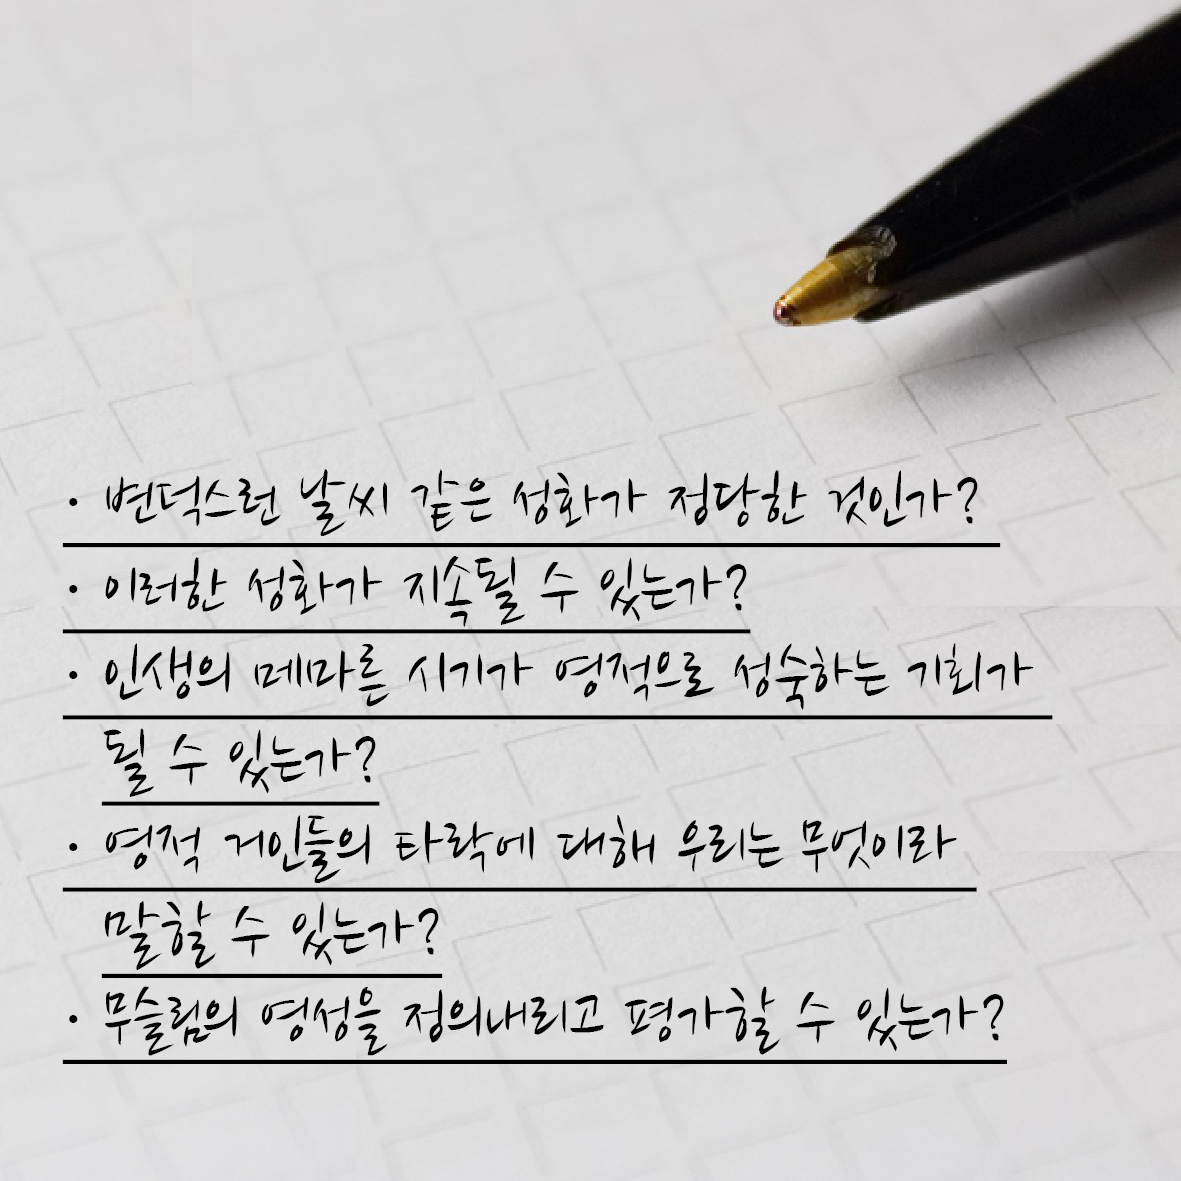 · 변덕스런 날씨 같은 성화가 정당한 것인가?
· 이러한 성화가 지속될 수 있는가?
· 인생의 메마른 시기가 영적으로 성숙하는 기회가
될 수 있는가?
· 영적 거인들의 타락에 대해 우리는 무엇이라
말할 수 있는가?
· 무슬림의 영성을 정의내리고 평가할 수 있는가?